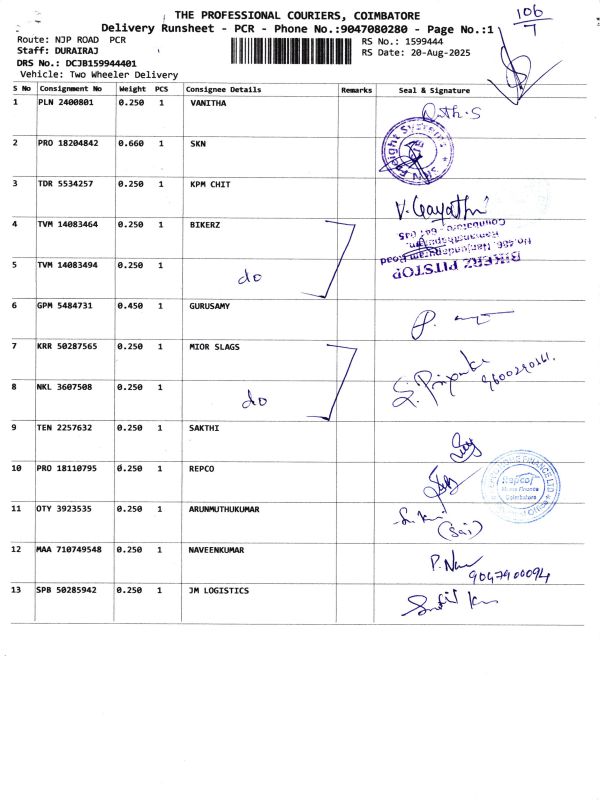 THE PROFESSIONAL COURIERS, COIMBATORE
106
7
Delivery Runsheet - PCR - Phone No.:9047080280 - Page No.:1
Route: NJP ROAD PCR
RS No.: 1599444
Staff: DURAIRAJ
RS Date: 20-Aug-2025
DRS No.: DCJB159944401
Vehicle: Two Wheeler Delivery
S No Consignment No Weight PCS Consignee Details Remarks Seal & Signature
1 PLN 2400801 0.250 1 VANITHA
2 PRO 18204842 0.660 1 SKN
SKN Freight Systems
3 TDR 5534257 0.250 1 KPM CHIT
V. Gayathri
4 TVM 14083464 0.250 1 BIKERZ
BIKERZ PITSTOP
No.486, Nanjundapuram Road
Ramanathapuram,
Coimbatore - 641 045
5 TVM 14083494 0.250 1 do
6 GPM 5484731 0.450 1 GURUSAMY
7 KRR 50287565 0.250 1 MIOR SLAGS
S. Priyanka
9600290161.
8 NKL 3607508 0.250 1 do
9 TEN 2257632 0.250 1 SAKTHI
10 PRO 18110795 0.250 1 REPCO
Repco
Home Finance
Coimbatore
11 OTY 3923535 0.250 1 ARUNMUTHUKUMAR
(Sai)
12 MAA 710749548 0.250 1 NAVEENKUMAR
P. Nav
9047900094
13 SPB 50285942 0.250 1 JM LOGISTICS